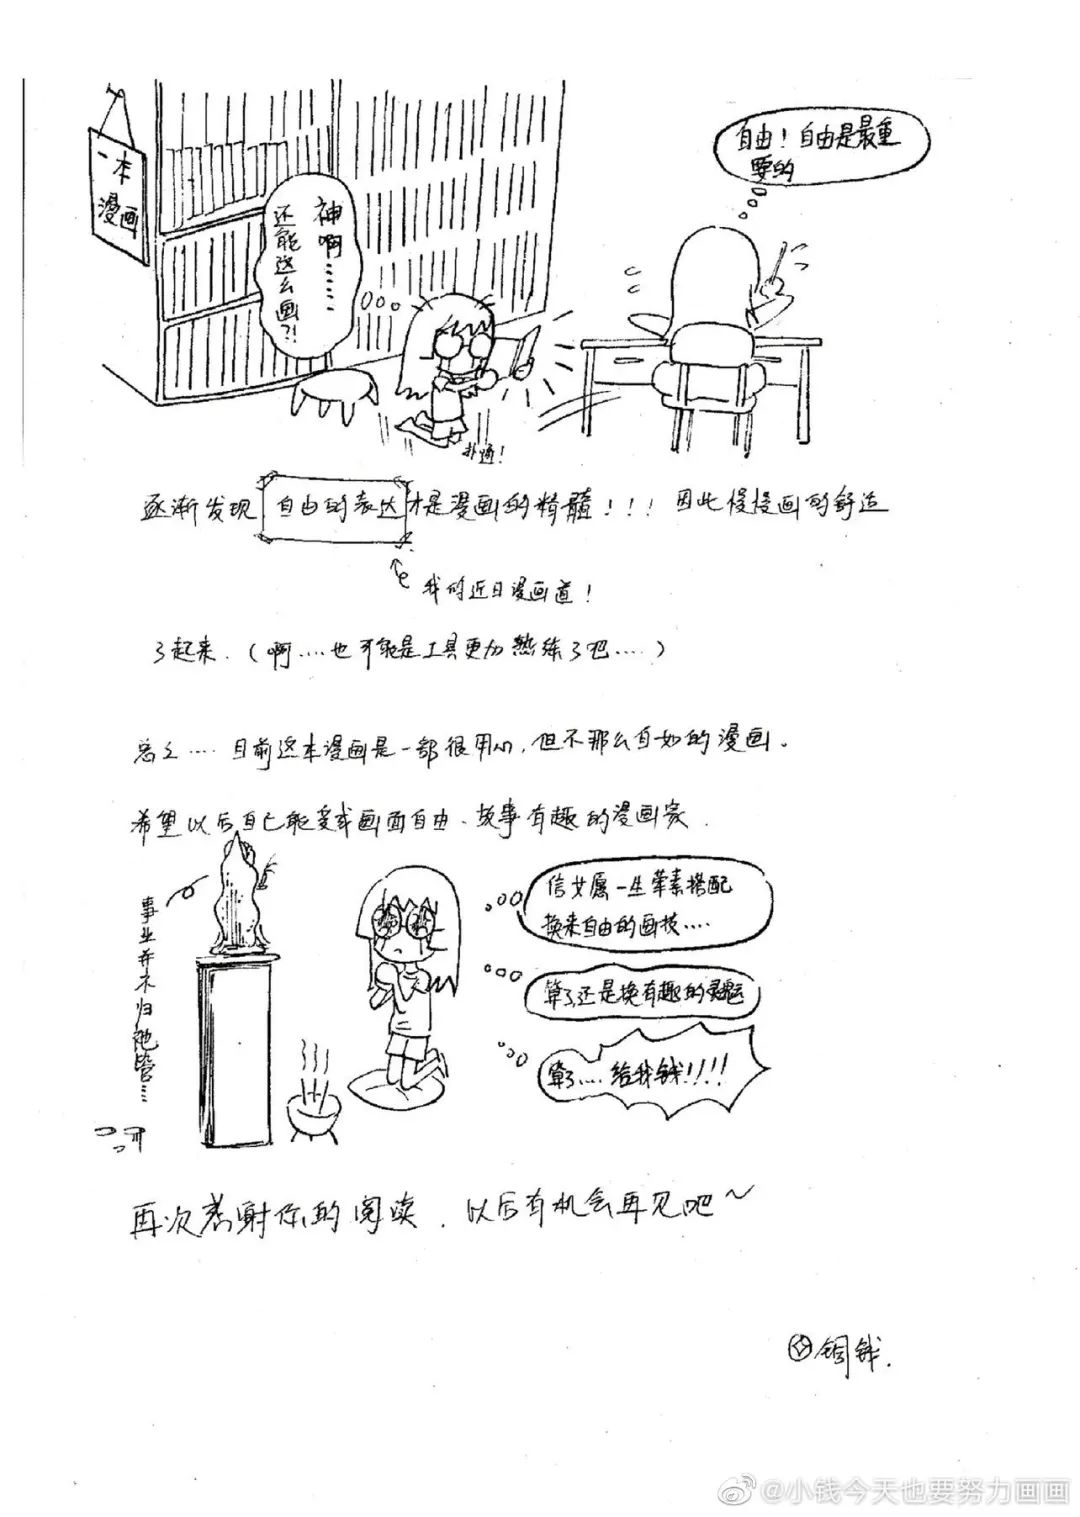 一本
漫画
神啊……
还能这么画?!
扑通!
自由！自由是最重
要的
逐渐发现 自由的表达 才是漫画的精髓！！！因此慢慢画的舒适
我的近日漫画道！
了起来.（啊....也可能是工具更加熟练了吧....）
总之....目前这本漫画是一部很用心,但不那么自如的漫画。
希望以后自己能变成画面自由、故事有趣的漫画家.
事业并不归祂管…
信女愿一生荤素搭配
换来自由的画技....
算了还是换有趣的灵魂
算了....给我钱!!!!
再次感谢你的阅读.以后有机会再见吧~
铜钱.
@小钱今天也要努力画画